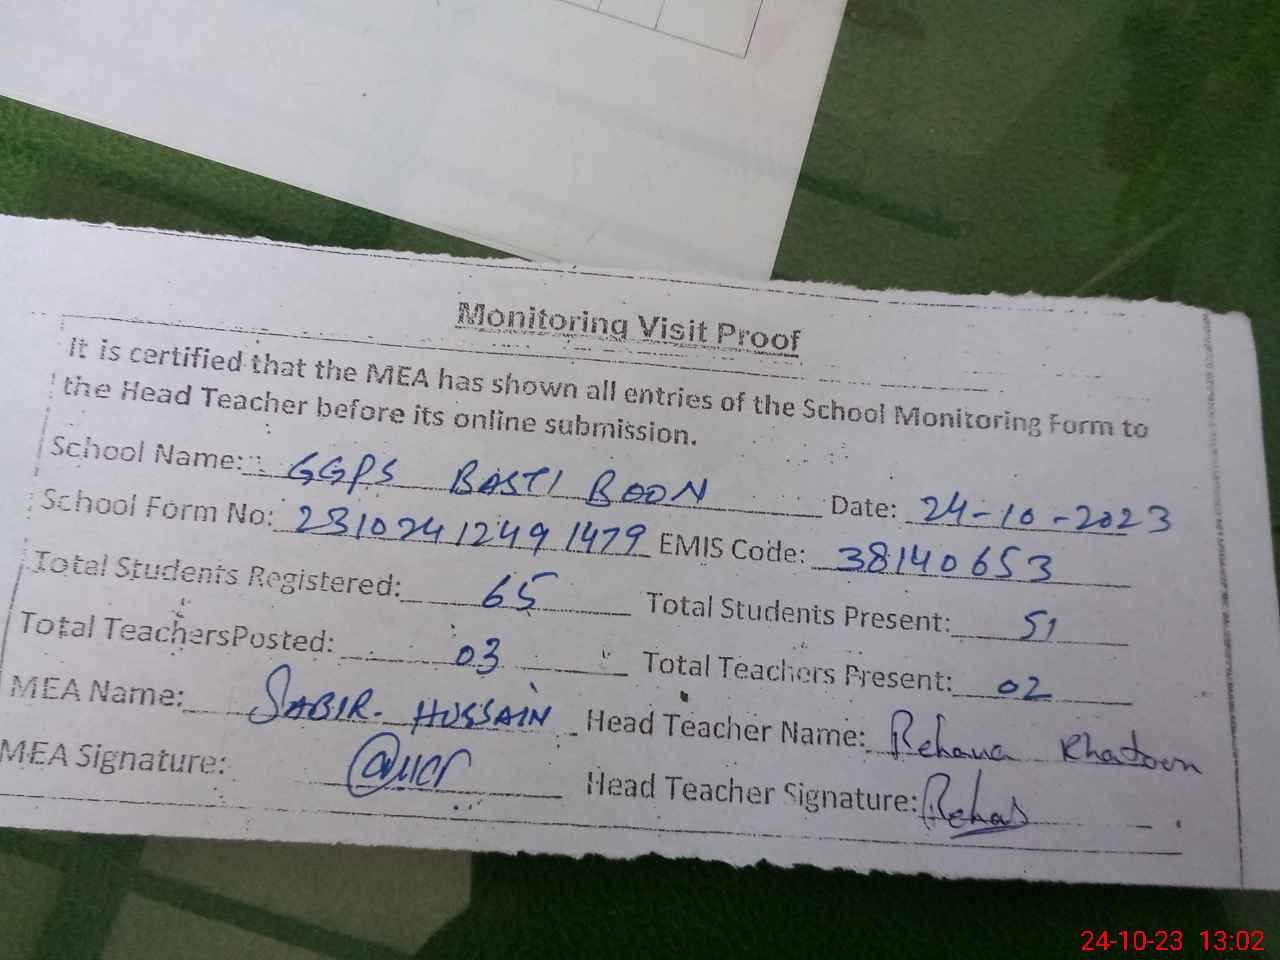 Monitoring Visit Proof
It is certified that the MEA has shown all entries of the School Monitoring Form to
the Head Teacher before its online submission.
School Name: GGPS BASTI BOON Date: 24-10-2023
School Form No: 23102412491479 EMIS Code: 38140653
Total Students Registered: 65 Total Students Present: 51
Total TeachersPosted: 03 Total Teachers Present: 02
MEA Name: SABIR HUSSAIN Head Teacher Name: Rehana Khatoon
MEA Signature: Head Teacher Signature:
24-10-23 13:02